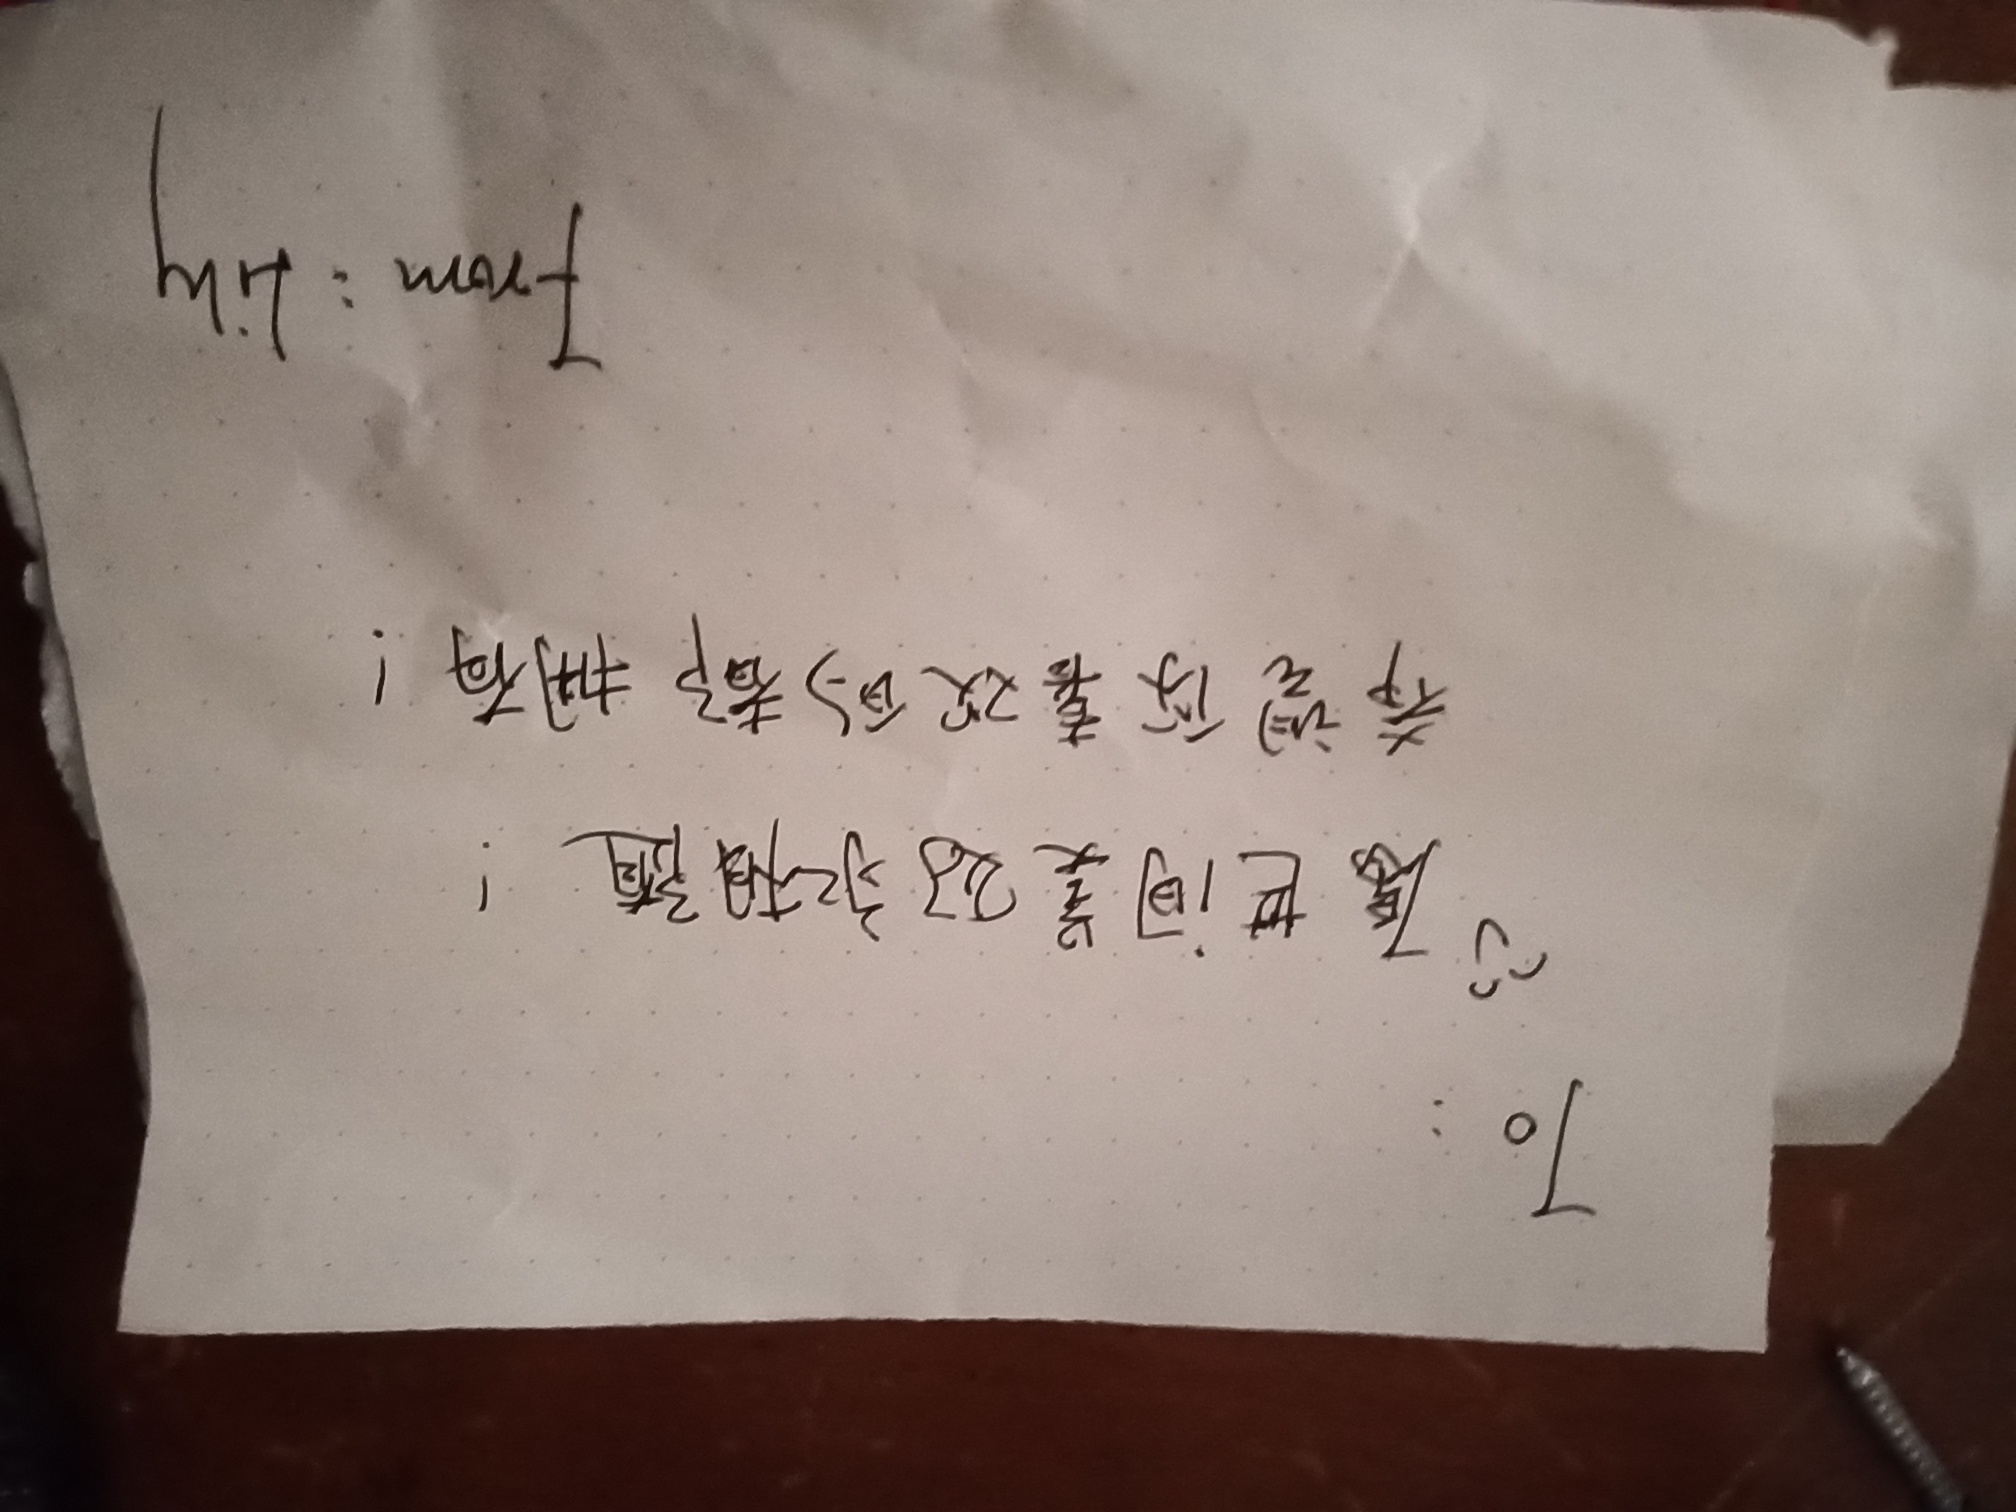 To :
愿世间美好永相随 !
希望你喜欢的都拥有 !
From : Lily